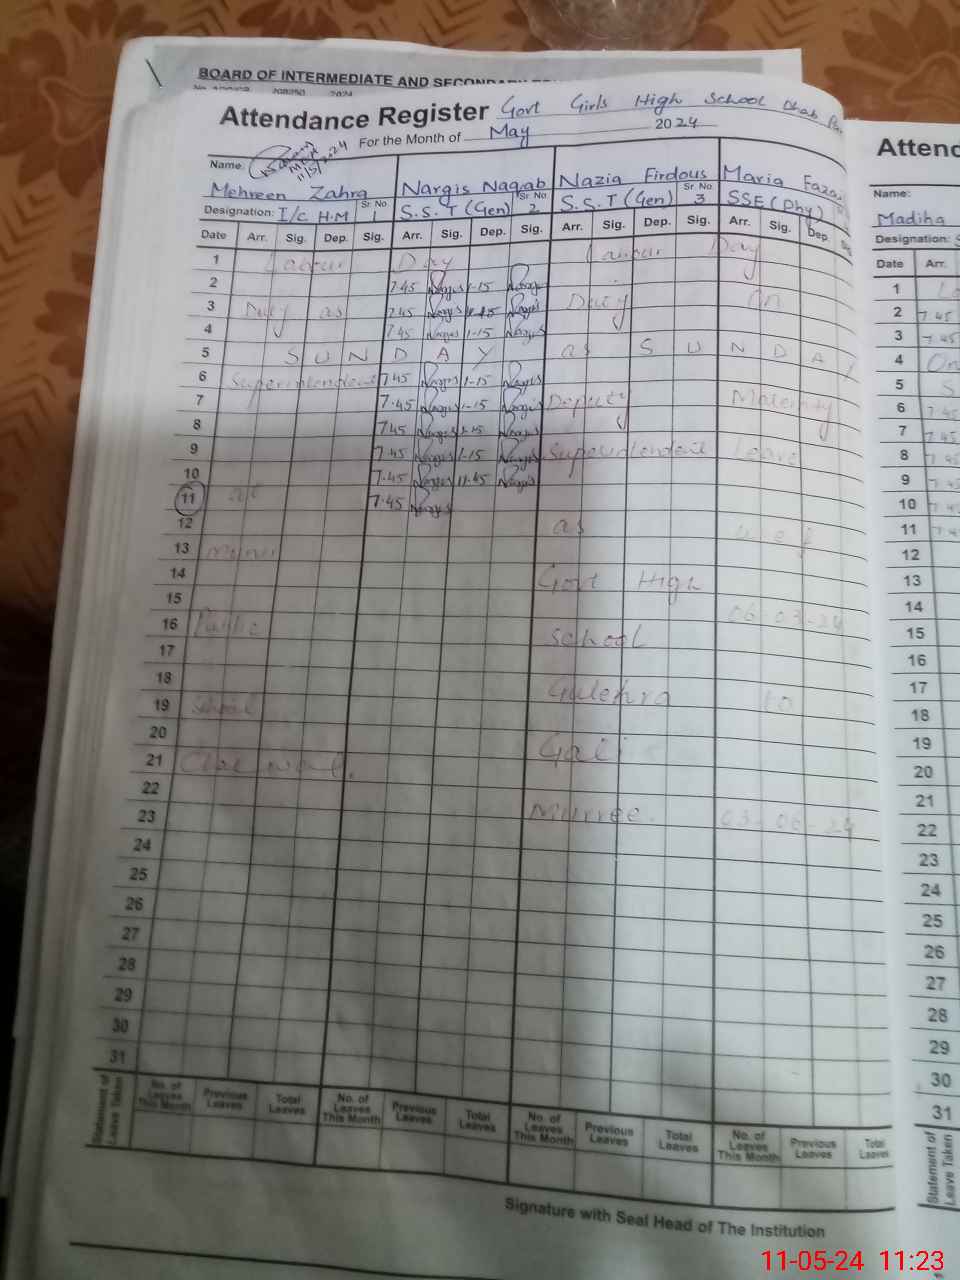 BOARD OF INTERMEDIATE AND SECONDARY
Attendance Register Govt Girls High School Dhab
For the Month of May 2024
Name:
11/5/2024
Mehreen Zahra Nargis Naqab Nazia Firdous Maria
Designation: I/c H.M Sr No. 1 S.S.T (Gen) Sr No. 2 S.S.T (Gen) Sr No. 3 SSE (Phy)
Date Arr. Sig. Dep. Sig. Arr. Sig. Dep. Sig. Arr. Sig. Dep. Sig. Arr. Sig. Dep.
1 Labour Day Labour Day
2 7.45 Nargis 1-15 Nargis
3 Duty as 7.45 Nargis 1-15 Nargis Duty On
4 7.45 Nargis 1-15 Nargis
5 S U N D A Y as S U N D A Y
6 Superintendent 7.45 Nargis 1-15 Nargis
7 7.45 Nargis 1-15 Nargis Deputy Maternity
8 7.45 Nargis 1-15 Nargis
9 7.45 Nargis 1-15 Nargis Superintendent Leave
10 7.45 Nargis 11.45 Nargis
11 at 7.45 Nargis
12 as w.e.f
13
14 Govt High
15 06-03-24
16 Public
17 School
18
19 School Gulehra to
20
21 Gali
22
23 Murree. 03-06-24
24
25
26
27
28
29
30
31
Statement of Leave Taken
No. of Leaves This Month Previous Leaves Total Leaves No. of Leaves This Month Previous Leaves Total Leaves No. of Leaves This Month Previous Leaves Total Leaves No. of Leaves This Month Previous Leaves Total Leaves
Signature with Seal Head of The Institution
Attend
Name:
Madiha
Designation:
Date Arr.
1
2 7.45
3 7.45
4 On
5 S
6 7.45
7 7.45
8 7.45
9 7.45
10 7.4
11 7.4
12
13
14
15
16
17
18
19
20
21
22
23
24
25
26
27
28
29
30
31
Statement of Leave Taken
11-05-24 11:23